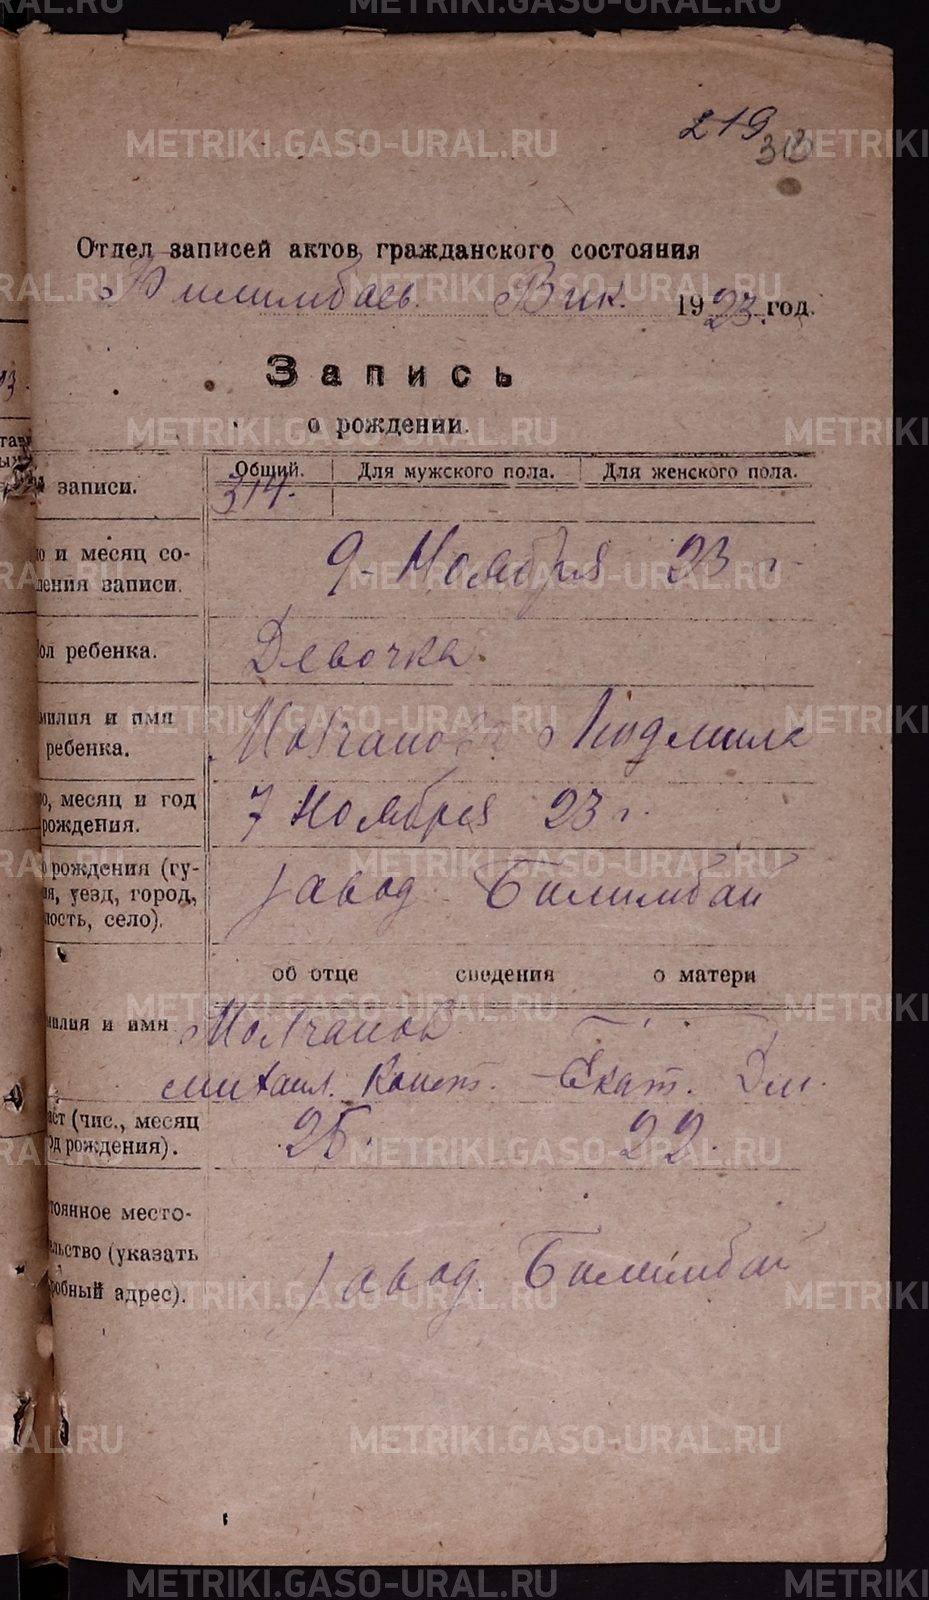 METRIKI.GASO-URAL.RU
219
310
Отдел записей актов гражданского состояния
Билимбаев. Вик. 1923 год.
Запись
о рождении.
записи.
Общий. Для мужского пола. Для женского пола.
314.
о и месяц со-
ления записи.
9. Ноября 23 г.
ол ребенка.
Девочка.
милия и имя
ребенка.
Молчанова Людмила
о, месяц и год
рождения.
7 Ноября 23 г.
о рождения (гу-
ия, уезд, город,
лость, село).
завод Билимбай
об отце сведения о матери
милия и имя
Молчанов
Михаил. Конст. Екат. Дм.
аст (чис., месяц
од рождения).
25. 22.
тоянное место-
льство (указать
робный адрес).
завод. Билимбай